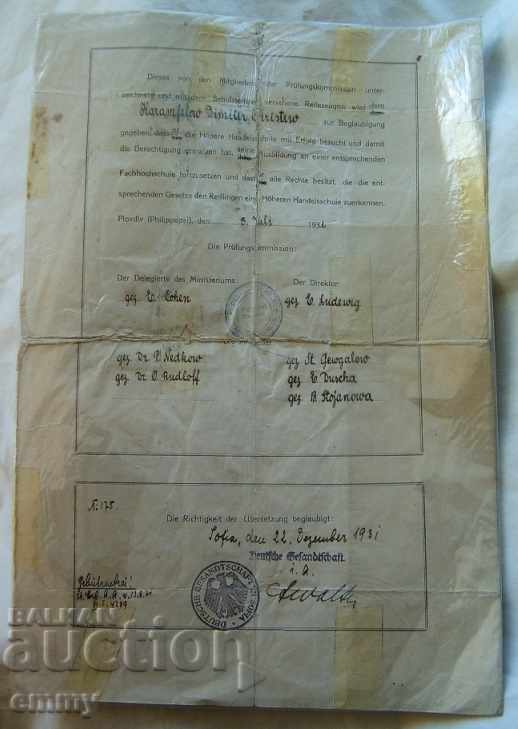 Dieses von den Mitgliedern der Prüfungskommission unter-
zeichnete und mit dem Schulsiegel versehene Reifezeugnis wird dem
Karamfilow Dimiter Christow
zur Beglaubigung
gegeben, dass er die Höhere Handelsschule mit Erfolg besucht und damit
die Berechtigung erworben hat, seine Ausbildung an einer entsprechenden
Fachhochschule fortzusetzen und dass er alle Rechte besitzt, die die ent-
sprechenden Gesetze den Reiflingen einer Höheren Handelsschule zuerkennen.
Plovdiv (Philippopel), den 3. Juli 1931
Die Prüfungskommission:
Der Delegierte des Ministeriums: Der Direktor:
gez. Cohen gez. Ludewig
gez. Dr. Nedkow gez. St. Gewgalow
gez. Dr. O. Rudloff gez. Duscha
gez. B. Stojanowa
N: 175
Die Richtigkeit der Übersetzung beglaubigt:
Sofia, den 22. Dezember 1931
Deutsche Gesandtschaft
i. A.
Gebührenfrei!
DEUTSCHE GESANDTSCHAFT SOFIA
BALKAN
auction
emmy